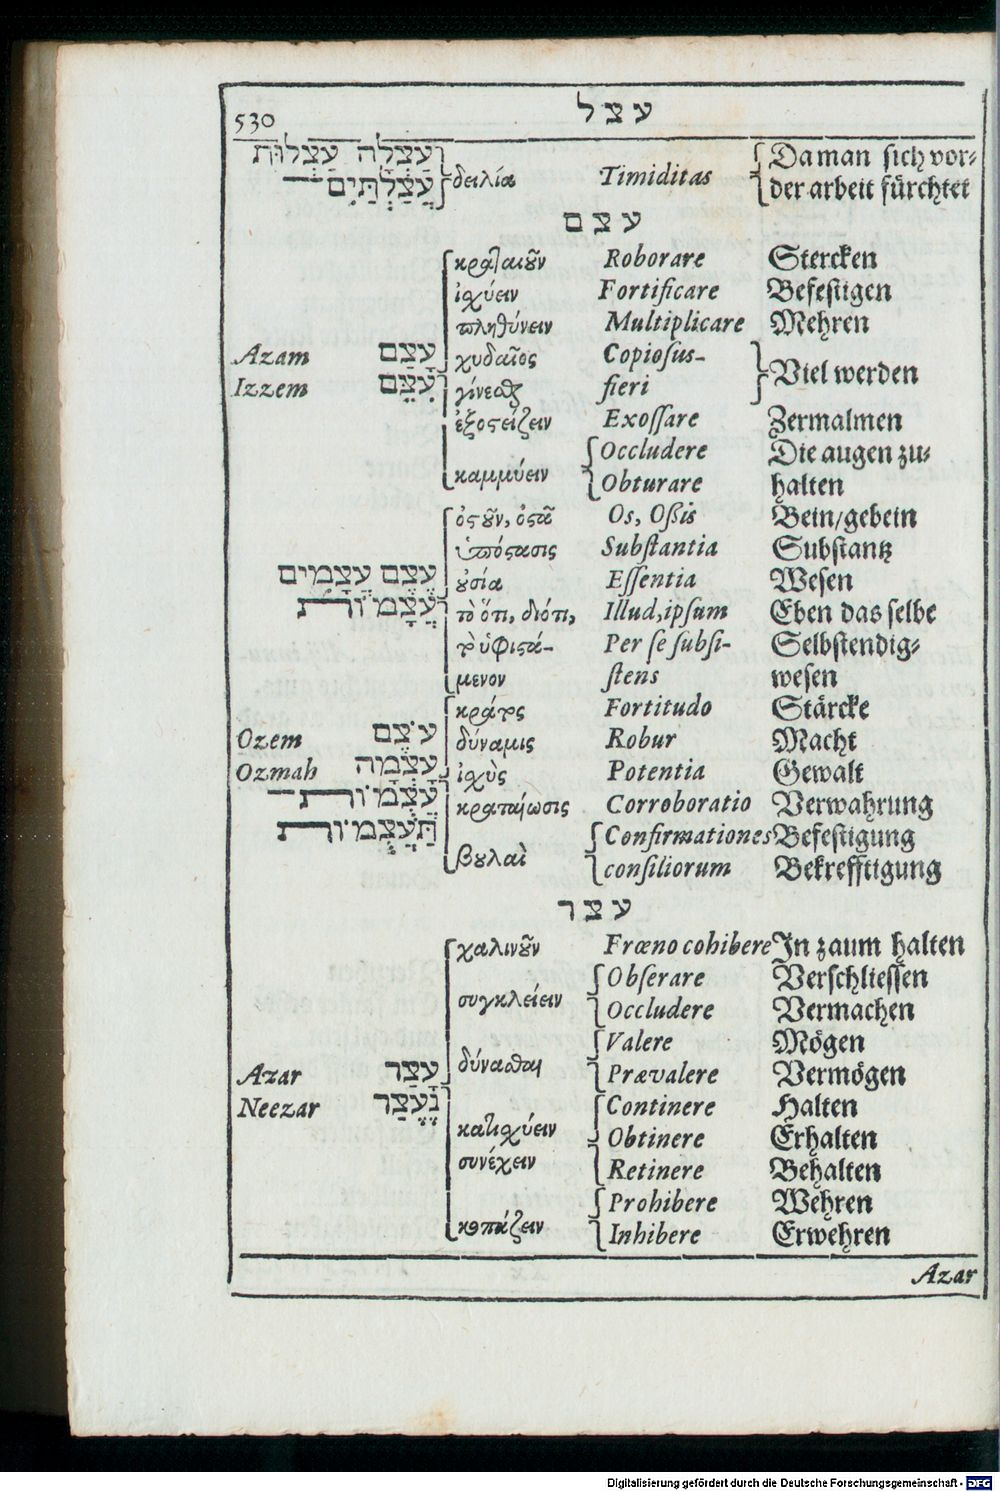 530 עצל
עַצְלָה עַצְלוּת δειλία Timiditas Da man sich vor⸗
עֲצַלְתַּיִם der arbeit fürchtet
עצם
κραταιοῦν Roborare Stercken
ἰσχύειν Fortificare Befestigen
πληθύνειν Multiplicare Mehren
Azam עָצַם χυδαῖος Copiosus- Viel werden
Izzem γίνεσθαι fieri
ἐξοστεΐζειν Exossare Zermalmen
Occludere Die augen zu⸗
καμμύειν Obturare halten
ὀστοῦν, ὀστᾶ Os, Oßis Bein/gebein
ὑπόστασις Substantia Substantz
עֶצֶם עֲצָמִים οὐσία Essentia Wesen
עֲצָמוֹת τὸ ὅτι, διότι, Illud, ipsum Eben das selbe
τὸ ὑφιστά- Per se subsi- Selbstendig⸗
μενον stens wesen
κράτος Fortitudo Stärcke
Ozem עֹצֶם δύναμις Robur Macht
Ozmah עָצְמָה ἰσχὺς Potentia Gewalt
κραταίωσις Corroboratio Verwahrung
תַּעֲצֻמוֹת Confirmationes Befestigung
βουλαὶ consiliorum Bekrefftigung
עצר
χαλινοῦν Fræno cohibere In zaum halten
Obserare Verschliessen
συγκλείειν Occludere Vermachen
Valere Mögen
Azar עָצַר δύνασθαι Prævalere Vermögen
Neezar נֶעֱצַר Continere Halten
κατισχύειν Obtinere Erhalten
συνέχειν Retinere Behalten
Prohibere Wehren
Inhibere Erwehren
Azar
Digitalisierung gefördert durch die Deutsche Forschungsgemeinschaft - DFG